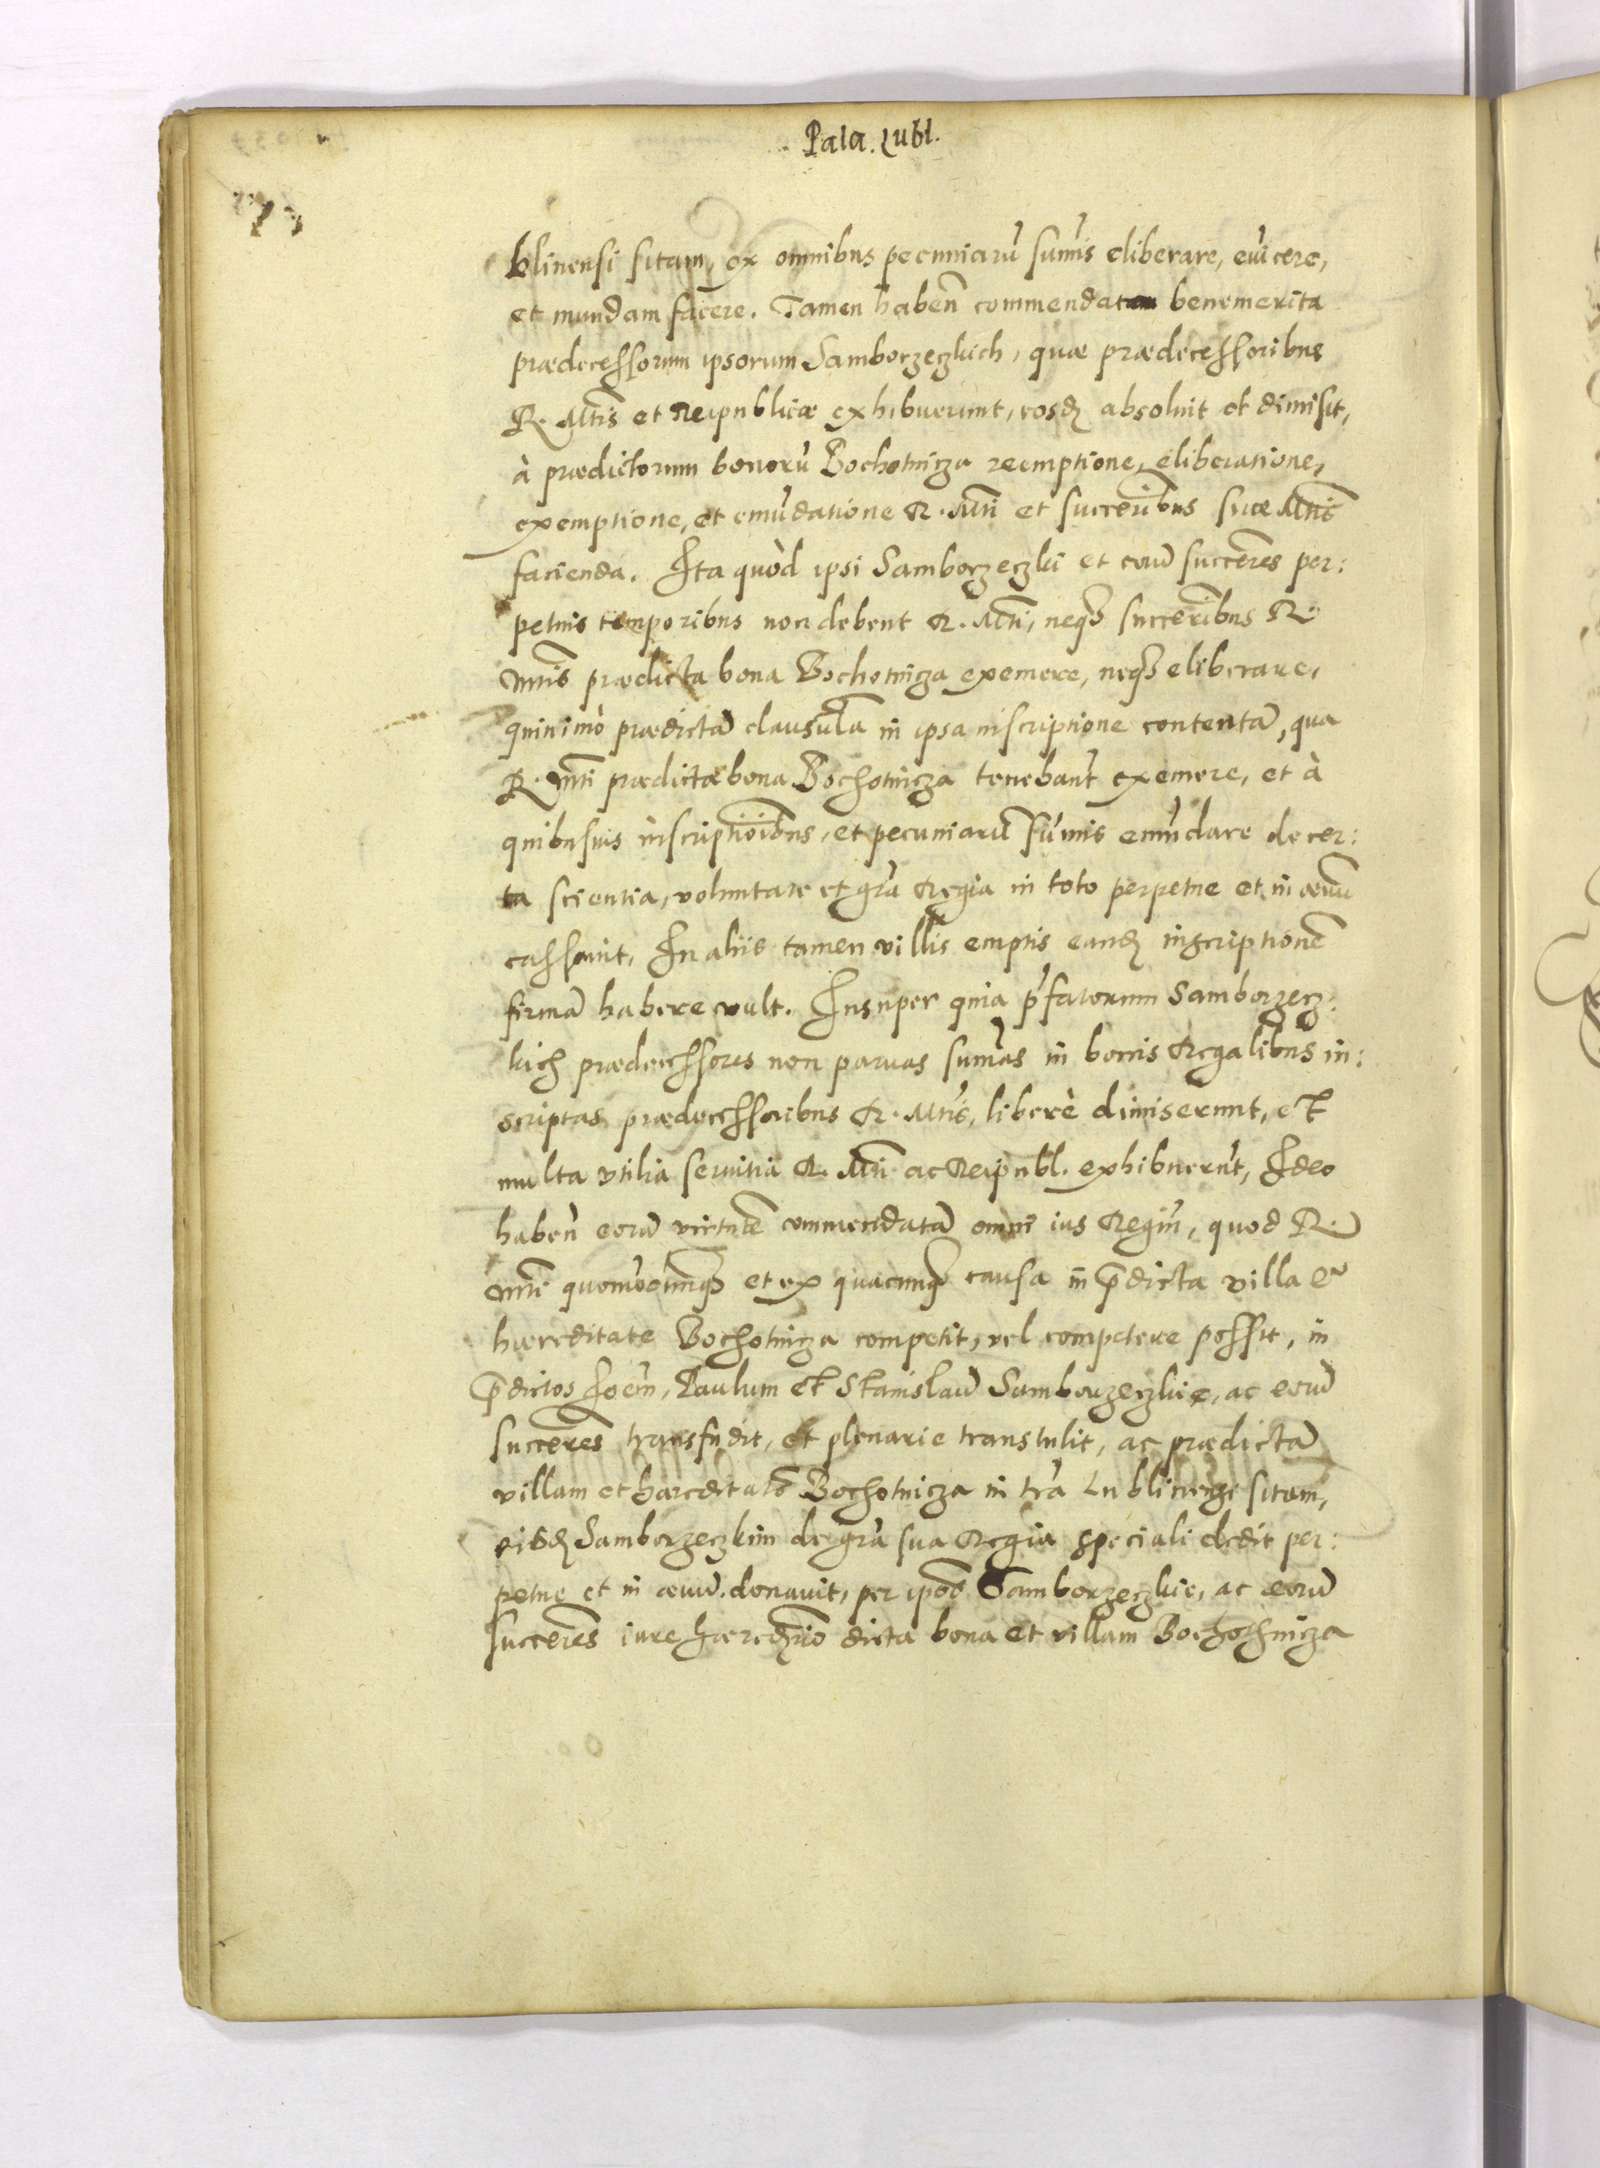 Pala. Lubl.
blinensi sitam, ex omnibus pecuniarū sum̄is eliberare, euīcere,
et mundam facere. Tamen haben̄ commendata benemerita
prædecessorum ipsorum Samborzeczkich, quæ prædecessoribus
R. Mtis et Reipublicæ exhibuerunt, eosdꝫ absoluit et dimisit,
à prædictorum bonorū Bochotnicza reemptione, eliberatione,
exemptione, et emūdatione R. Mti et succerībus suæ Mtis
facienda. Ita quòd ipsi Samborzeczki et eorū succeres per:
petuis temporibus non debent R. Mti, neqꝫ succeribus R.
Mtis prædicta bona Bochotnicza exemere, neqꝫ eliberare,
quinimò prædictā clausulā in ipsa inscriptione contentā, qua
R. Mti prædicta bona Bochotnicza tenebant̄ exemere, et à
quibusuis inscriptioībus, et pecuniarū sum̄is emūdare de cer:
ta scientia, voluntate et gr̄a Regia in toto perpetue et in æuū
cassauit, In aliis tamen villis emptis eandꝫ inscriptionē
firmā habere vult. Insuper quia p̄fatorum Samborzecz:
kich prædecessores non paruas sum̄as in bonis Regalibus in:
scriptas prædecessoribus R. Mtis, liberè dimiserunt, et
multa vtilia seruitia R. Mti ac Reipubl. exhibuerūt, Ideo
haben̄ eorū virtutē commendatā omne ius Regiū, quod R.
Mti quomōcunqꝫ et ex quacunqꝫ causa in p̄dicta villa et
hæreditate Bochotnicza competit, vel competere possit, in
p̄dictos Ioēm, Paulum et Stanislaū Samborzeczkie, ac eorū
succeres transfudit, et plenarie transtulit, ac prædictā
villam et hæreditatē Bochotnicza in tr̄a Lublinensi sitam,
eisdꝫ Samborzeczkim de gr̄a sua Regia speciali dedit per:
petue et in æuū donauit, per ipsos Samborzeczkie, ac eorū
succeres iure hæredrio dicta bona et villam Bochothnicza